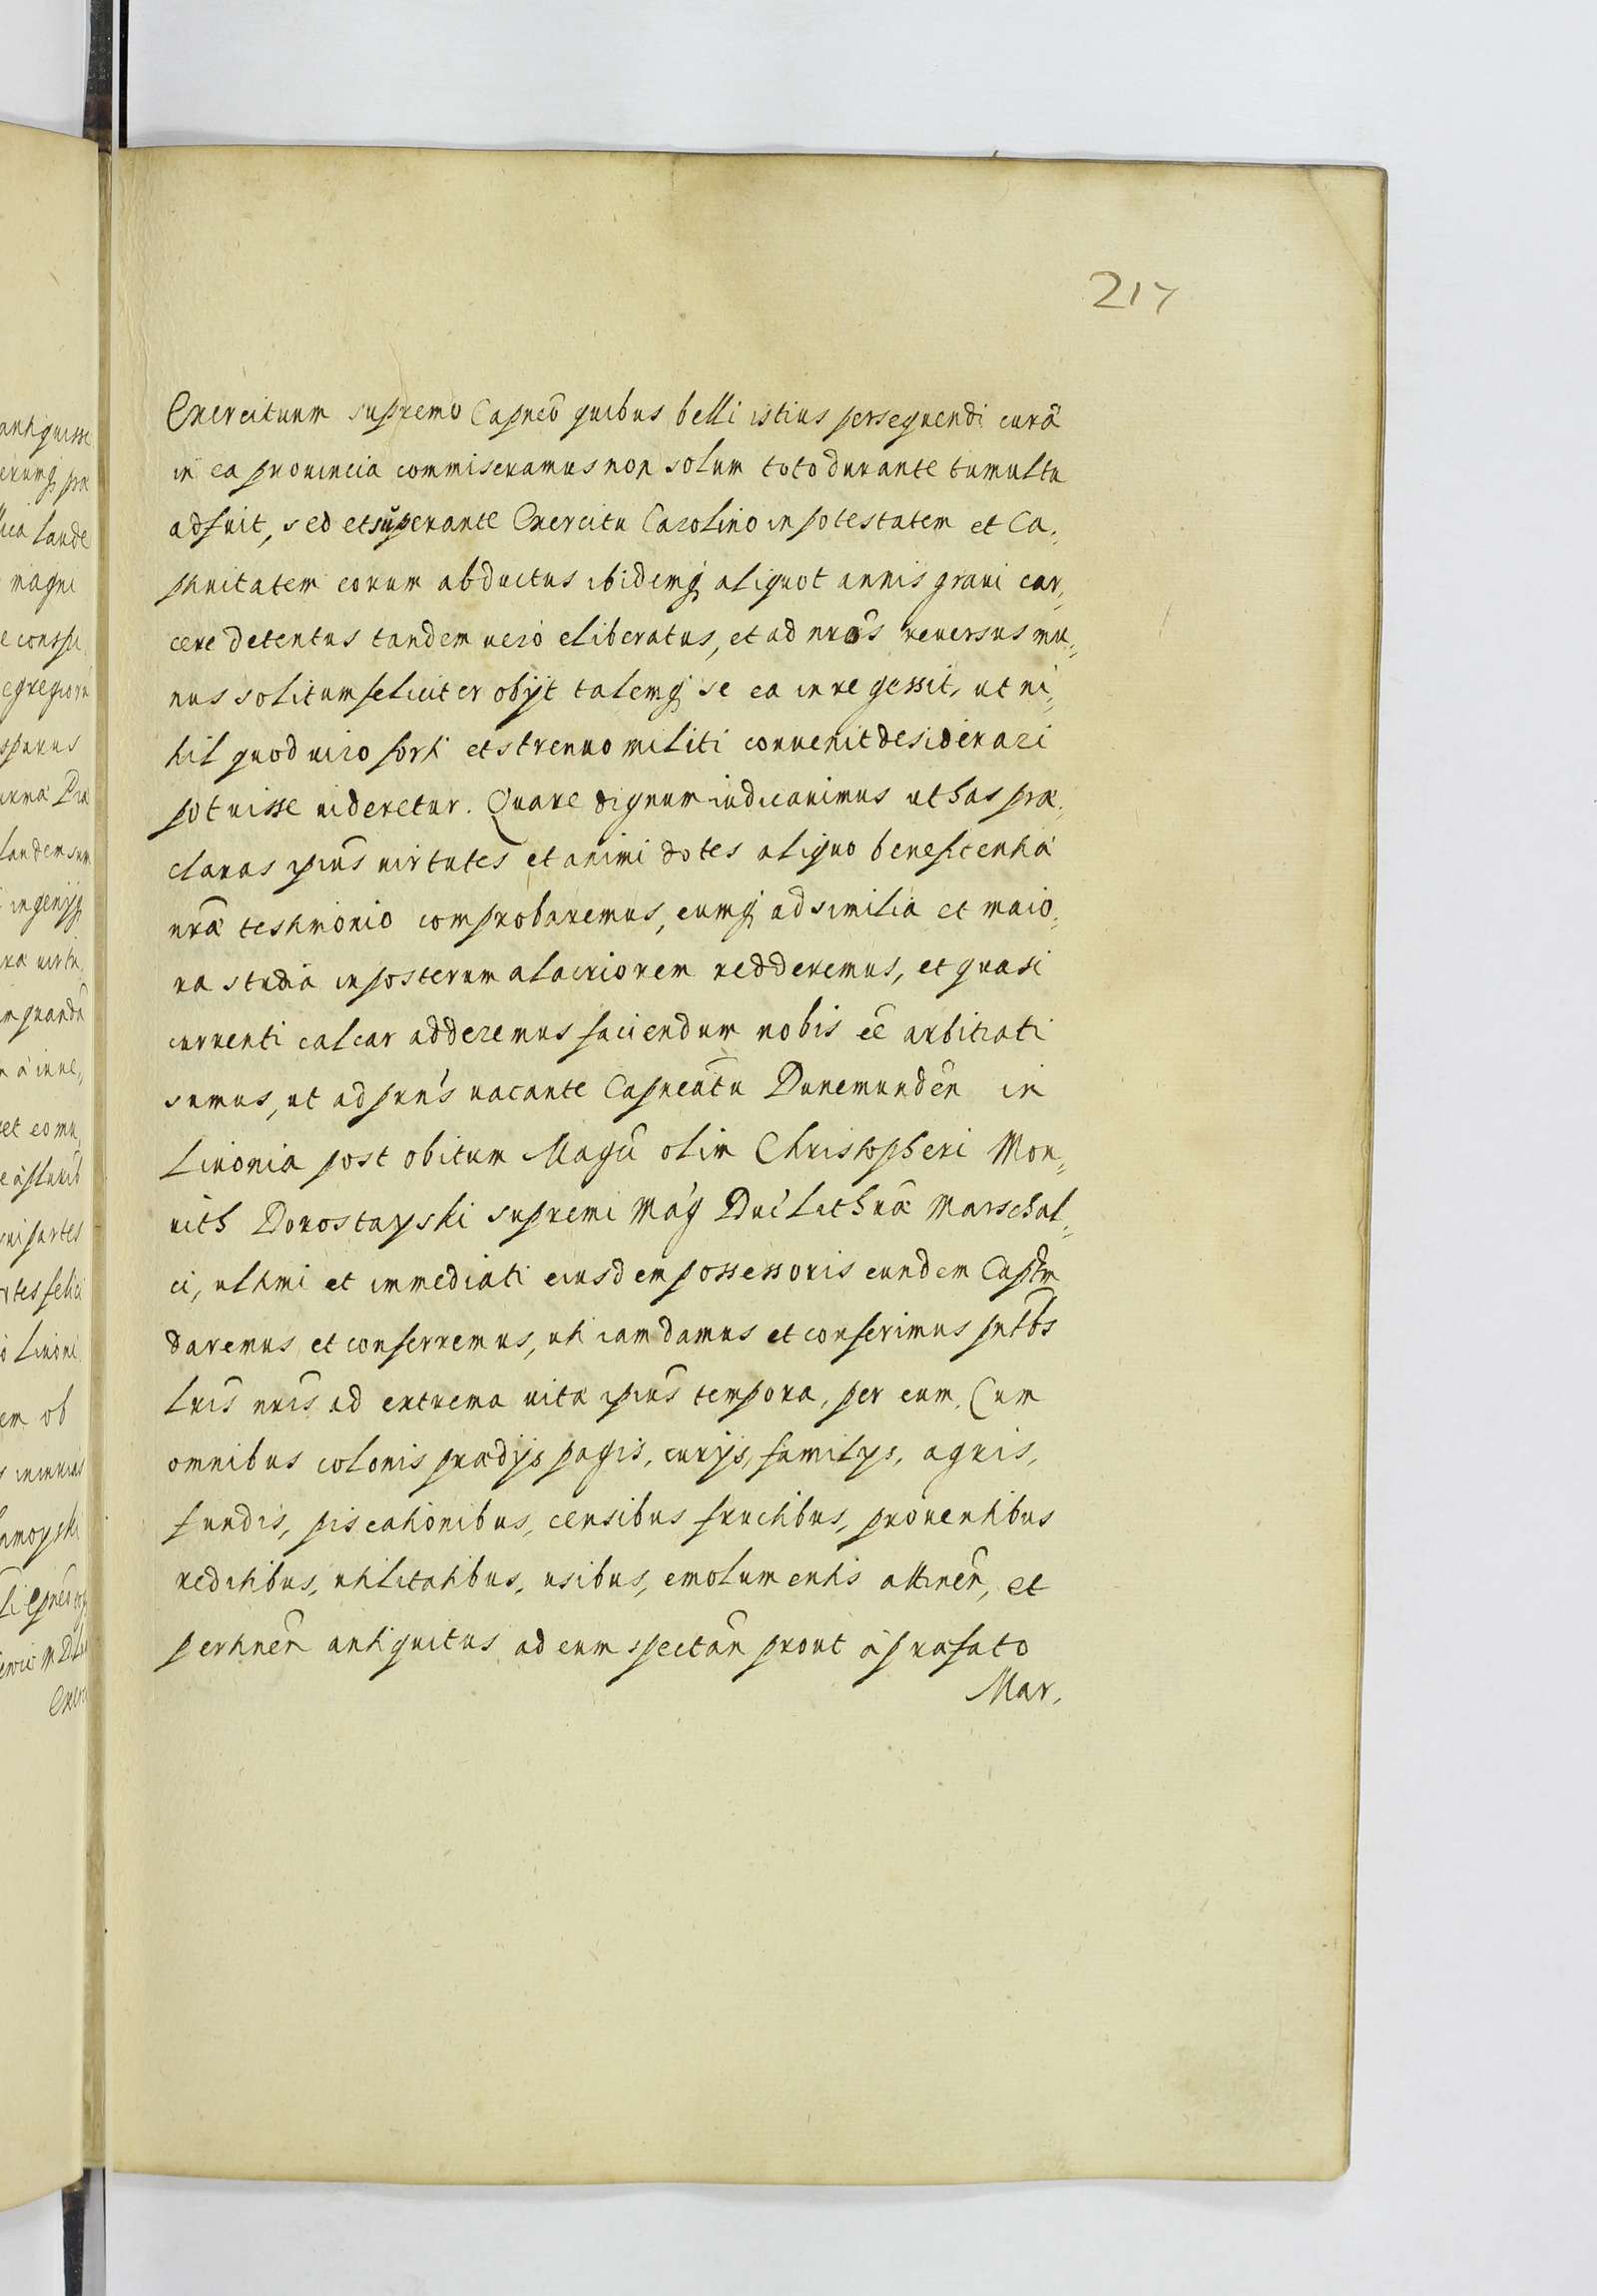 217
Exercituum supremo Capneo quibus belli istius persequendi curã
in ea prouincia commiseramus non solum toto durante tumultu
adfuit, sed et superante Exercitu Carolino in potestatem et Ca,
ptiuitatem eorum abductus ibidemq aliquot annis graui car,
cere detentus tandem uero eliberatus, et ad nros reuersus mu,
nus solitum feliciter obijt talemq se ea in re gessit, ut ni,
hil quod uiro forti et strenuo militi conuenit desiderari
potuisse uideretur. Quare dignum iudicauimus ut has præ,
claras ipius uirtutes et animi dotes aliquo beneficentiæ
nræ testimonio comprobaremus, eumq ad similia et maio,
ra studia in posterum alacriorem redderemus, et quasi
currenti calcar adderemus faciendum nobis eẽ arbitrati
sumus, ut ad prn's uacante Capneatu Dunemunden in
Liuonia post obitum Magci olim Christopheri Mon,
uith Dorostayski supremi Mag Duc Lithuæ Marschal,
ci, ultimi et immediati eiusdem possessoris eundem Captm
daremus et conferremus, uti iam damus et conferimus pntbs
lris nris ad extrema uitæ ipius tempora, per eum, Cum
omnibus colonis prædijs pagis, curijs, familijs, agris,
fundis, piscationibus, censibus fructibus, prouentibus
reditibus, utilitatibus, usibus, emolumentis attinen, et
pertinen antiquitus ad eum spectan prout à præfato
Mar,